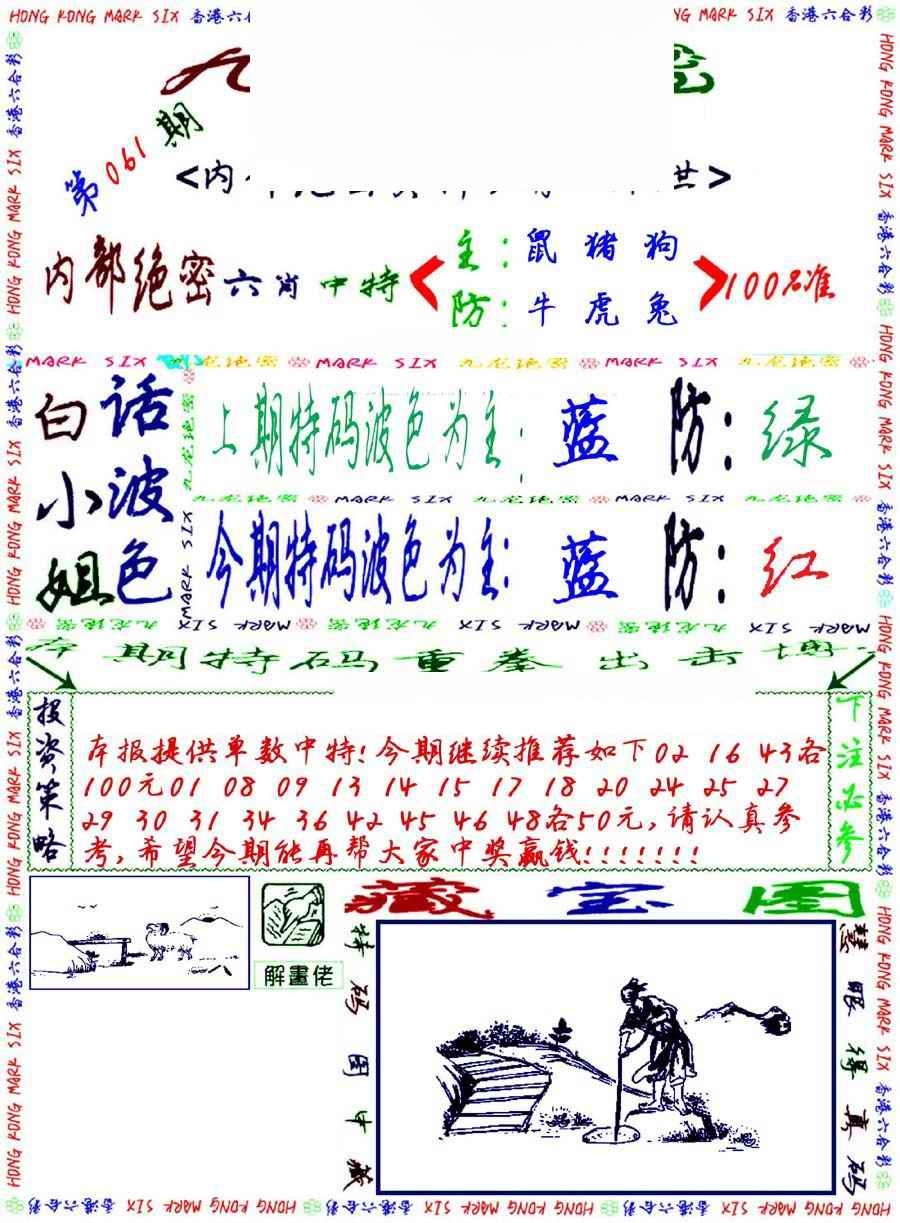 HONG KONG MARK SIX 香港六合彩
第061期
<内
供>
内部绝密六肖中特
主：鼠 猪 狗
防：牛 虎 兔
100%准
MARK SIX 九龙绝密 MARK SIX 九龙绝密 MARK SIX 九龙绝密
白话
小波
姐色
上期特码波色为主：蓝 防：绿
九龙绝密 MARK SIX 九龙绝密 MARK SIX 九龙绝密
今期特码波色为主：蓝 防：红
MARK SIX 九龙绝密 MARK SIX 九龙绝密 MARK SIX 九龙绝密
本期特码重拳出击
投资策略
本报提供单数中特!今期继续推荐如下02 16 43各
100元01 08 09 13 14 15 17 18 20 24 25 27
29 30 31 34 36 42 45 46 48各50元,请认真参
考,希望今期能再帮大家中奖赢钱!!!!!!!
下注必参
解畫佬
藏宝图
特码图中藏
慧眼得真码
HONG KONG MARK SIX 香港六合彩